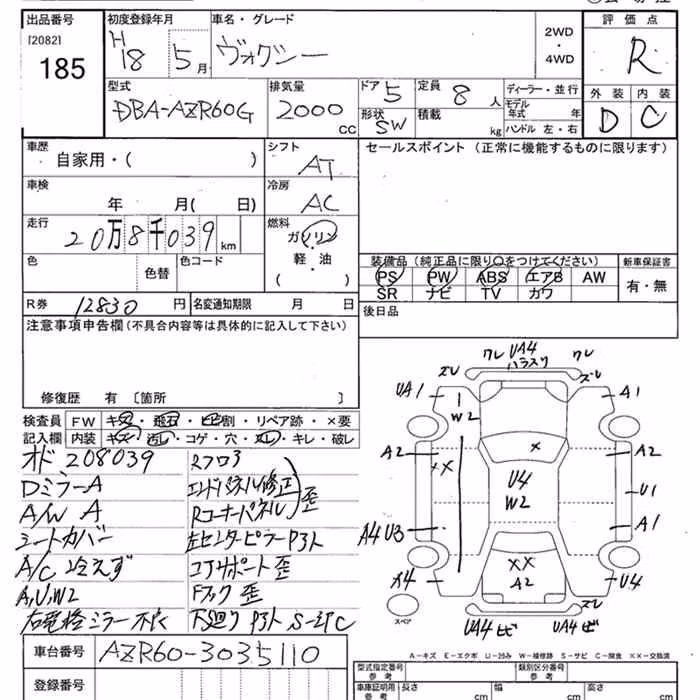 出品番号 初度登録年月 車名・グレード 評価点
[2082]
185 H18 5月 ヴォクシー 2WD・4WD R
型式 排気量 ドア 5 定員 8人 ディーラー・並行 外装 内装
DBA-AZR60G 2000cc 形状 SW 積載 kg モデル年式 年 D C
ハンドル 左・右
車歴 シフト セールスポイント (正常に機能するものに限ります)
自家用・( ) AT
車検 冷房
年 月( 日) AC
走行 燃料
20万8千039km ガソリン
軽・油
( )
色 色替 色コード 装備品 (純正品に限り○をつけてください) 新車保証書
PS PW ABS エアB AW 有・無
SR ナビ TV カワ
R券 12830円 名変通知期限 月 日 後日品
注意事項申告欄 (不具合内容等は具体的に記入して下さい)
修復歴 有 〔箇所 〕
検査員記入欄 FW キズ・飛石・ヒビ割・リペア跡・×要
内装 キズ・汚し・コゲ・穴・スレ・キレ・破レ
オド 208039 Rフロア
Dミラー A エンドパネル修正 歪
A/W A Rコーナーパネル
シートカバー 左センターピラー P3ト
A/C 冷えず コアサポート 歪
A,U,W2 Fフック 歪
右電格ミラー不良 下廻り P3ト S-EPC
ワレ UA4 ワレ
ハラスリ
ズレ ズレ
UA1 W2 A1
A2 XX X A2
U4
W2 U1
A4 U3 A1
XX
A2
A4 U4
ズレ
スペア UA4 ビ UA4 ビ
A-キズ E-エクボ U-凹み W-補修跡 S-サビ C-腐食 XX-交換済
車台番号 AZR60-3035110
登録番号
型式指定番号 類別区分番号
参考 参考
車庫証明用 長さ cm 幅 cm 高さ cm
参考